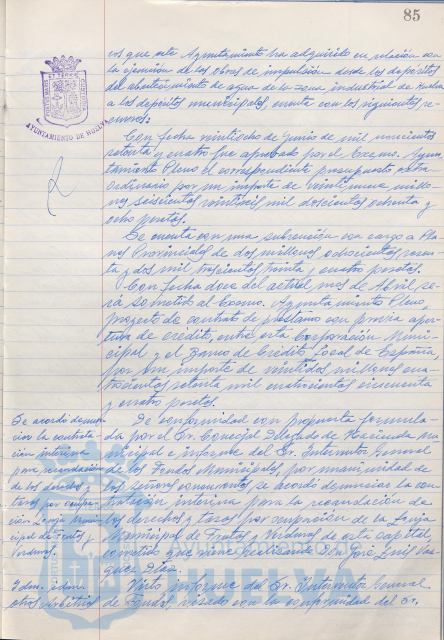 85
vos que este Ayuntamiento ha adquirido en relación con
la ejecución de las obras de impulsión desde los depósitos
del abastecimiento de agua de la zona industrial de Huelva
a los depósitos municipales, cuenta con los siguientes re-
cursos:
AYUNTAMIENTO DE HUELVA
Con fecha veintiocho de Junio de mil novecientos
setenta y cuatro fue aprobado por el Excmo. Ayun-
tamiento Pleno el correspondiente presupuesto extra-
ordinario por un importe de veintinueve millo-
nes seiscientos veintiseis mil doscientas ochenta y
ocho pesetas.
Se cuenta con una subvención con cargo a Pla-
nes Provinciales de dos millones ochocientas
ta y dos mil trescientas treinta y cuatro pesetas.
Con fecha doce del actual mes de Abril, se-
rá sometido al Excmo. Ayuntamiento Pleno,
proyecto de contrato de préstamo con previa aper-
tura de crédito, entre esta Corporación Muni-
cipal y el Banco de Crédito Local de España,
por un importe de veintidos millones cua-
trocientas setenta mil cuatrocientas cincuenta
y cuatro pesetas.
Se acordó denun-
ciar la contrata-
ción interina
para recaudación
de los derechos y
tasas por ocupa-
ción Lonja Muni-
cipal de Frutas y
Verduras.
De conformidad con propuesta formula-
da por el Sr. Concejal Delegado de Hacienda mu-
nicipal e informe del Sr. Interventor General
de los Fondos Municipales, por unanimidad de
los señores concurrentes se acordó denunciar la con-
tratación interina para la recaudación de
los derechos y tasas por ocupación de la Lonja
Municipal de Frutas y Verduras de esta capital,
cometido que viene realizando Don José Luis
quez Díaz.
Idem. idem.
otros arbitrios
Visto informe del Sr. Interventor General
de Fondos, visado con la conformidad del Sr.
HUELVA